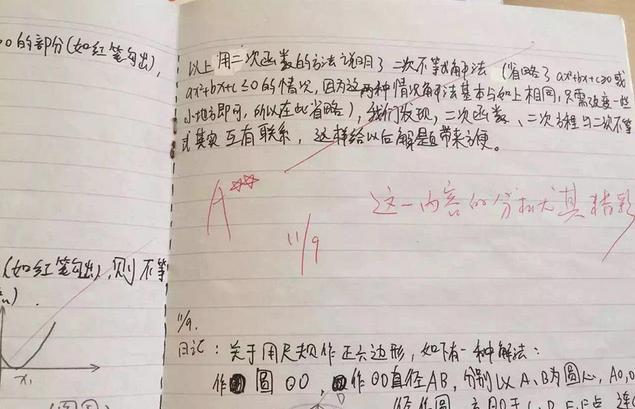 0的部分(如红笔勾出),
(如红笔勾出),则不等
x₁
以上用二次函数的方法说明了二次不等式解法(省略了ax²+bx+c≥0或
ax²+bx+c≤0的情况,因为这两种情况解法基本与如上相同,只需改变一些
小地方即可,所以在此省略),我们发现,二次函数、二次方程与二次不等
式其实互有联系,这样给以后解题带来方便。
A
11/9
这一内容的分析尤其精彩
11/9.
日记:关于用尺规作正六边形,如下有一种解法:
作圆⊙O,作⊙O直径AB,分别以A、B为圆心,AO,